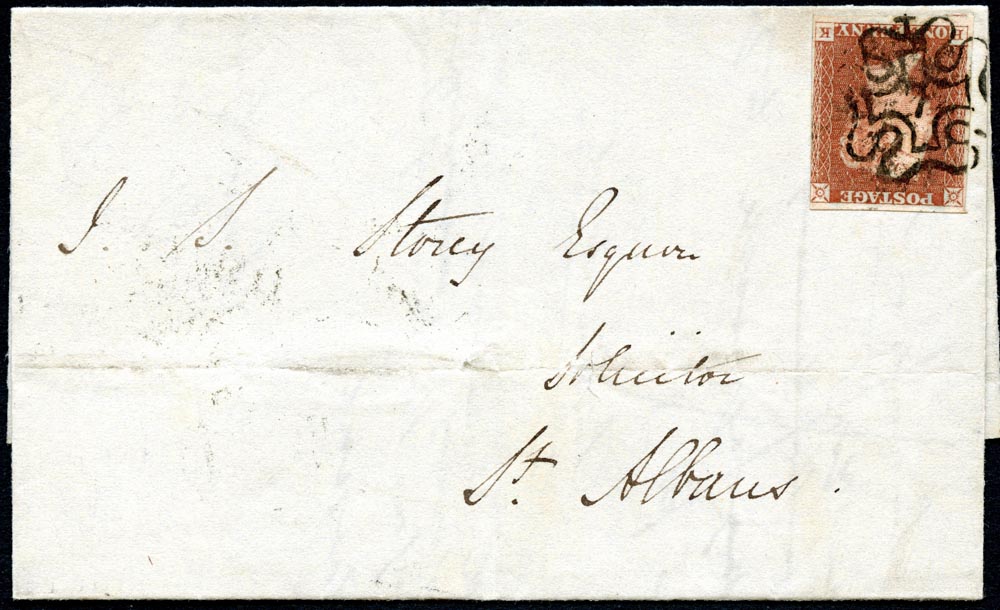 K ONE PENNY H
POSTAGE
J. S. Storey Esquire
Solicitor
St. Albans.